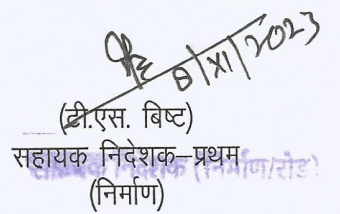 8/XI/2023
(टी.एस. बिष्ट)
सहायक निदेशक–प्रथम
(निर्माण/रोड)
(निर्माण)